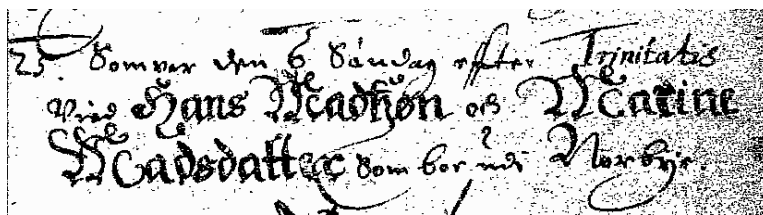 23. Somvar den 6 Søndag effter Trinitatis
Vied Hans Madsøn och Marine
Madsdatter som boe udi Norbye.